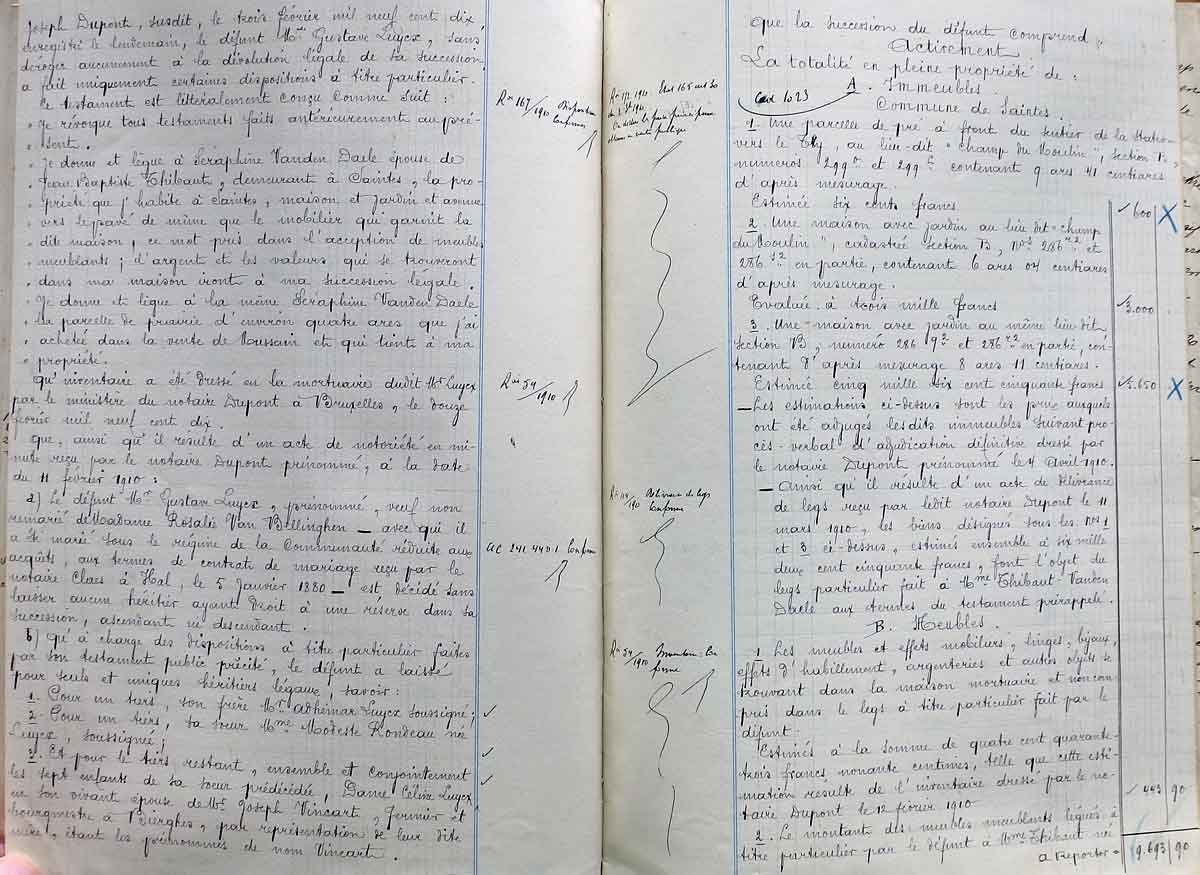 Joseph Dupont, susdit, le trois février mil neuf cent dix,
enregistré le lendemain, le défunt Mr Gustave Luycx, sans
déroger aucunement à la dévolution légale de sa succession,
a fait uniquement certaines dispositions à titre particulier.
Ce testament est littéralement conçu comme suit :
" Je révoque tous testaments faits antérieurement au pré-
" sent.
" Je donne et lègue à Séraphine Vanden Daele épouse de
" Jean Baptiste Thibaut, demeurant à Saintes, la pro-
" priété que j'habite à Saintes, maison et jardin et avenue
" vers le pavé de même que le mobilier qui garnit la
" dite maison, ce mot pris dans l'acception de meubles
" meublants ; l'argent et les valeurs qui se trouveront
" dans ma maison iront à ma succession légale.
" Je donne et lègue à la même Séraphine Vanden Daele
" la parcelle de prairie d'environ quatre ares que j'ai
" acheté dans la vente de Toussain et qui tient à ma
" propriété.
qu'inventaire a été dressé en la mortuaire dudit Mr Luycx
par le ministère du notaire Dupont à Bruxelles, le douze
février mil neuf cent dix.
que, ainsi qu'il résulte d'un acte de notoriété en mi-
nute reçu par le notaire Dupont prénommé, à la date
du 11 février 1910 :
a) Le défunt Mr Gustave Luycx, prénommé, veuf non
remarié de Madame Rosalie Van Bellinghen _ avec qui il
a été marié sous le régime de la Communauté réduite aux
acquêts, aux termes de contrat de mariage reçu par le
notaire Claes à Hal, le 5 Janvier 1880 _ est décédé sans
laisser aucun héritier ayant droit à une réserve dans sa
succession, ascendant ni descendant.
b) qu'à charge des dispositions à titre particulier faites
par son testament public précité, le défunt a laissé
pour seuls et uniques héritiers légaux, savoir :
1. Pour un tiers, son frère Mr Adhémar Luycx soussigné ;
2. Pour un tiers, sa soeur Mme Modeste Rondeau née
Luycx, soussignée ;
3. Et pour le tiers restant, ensemble et conjointement
les sept enfants de sa soeur prédécédée, Dame Céline Luycx,
en son vivant épouse de Mr Joseph Vincart, fermier et
bourgmestre à Bierghes, par représentation de leur dite
mère, étant les prénommés de nom Vincart.
Rn 167/1910 Disposition
conforme
Rn 54/1910
AC 241 440.1 Conforme
que la succession du défunt comprend :
Activement
La totalité en pleine propriété de :
A. Immeubles.
Cad 1023
Commune de Saintes.
1. Une parcelle de pré à front du sentier de la Station
vers le Cly, au lieu-dit "Champ du Moulin", Section B,
numéros 299 et 299 contenant 9 ares 41 centiares
d'après mesurage.
Estimée six cents francs
600
2. Une maison avec jardin au lieu dit "champ
du Moulin", cadastrée Section B, Nos 286 r2 et
286 s2 en partie, contenant 6 ares 04 centiares
d'après mesurage.
Evaluée à trois mille francs
3.000
3. Une maison avec jardin au même lieu dit
Section B, numéro 286 q2 et 286 r2 en partie, con-
tenant d'après mesurage 8 ares 11 centiares.
Estimée cinq mille six cent cinquante francs
5.650
_ Les estimations ci-dessus sont les prix auxquels
ont été adjugés lesdits immeubles suivant pro-
cès-verbal d'adjudication définitive dressé par
le notaire Dupont prénommé le 4 avril 1910.
_ Ainsi qu'il résulte d'un acte de délivrance
de legs reçu par ledit notaire Dupont le 11
mars 1910, les biens désignés sous les Nos 1
et 3 ci-dessus, estimés ensemble à six mille
deux cent cinquante francs, font l'objet du
legs particulier fait à Mme Thibaut-Vanden
Daele aux termes du testament prérappelé.
B. Meubles.
1. Les meubles et effets mobiliers, linges, bijoux,
effets d'habillement, argenteries et autres objets se
trouvant dans la maison mortuaire et non com-
pris dans le legs à titre particulier fait par le
défunt.
Estimés à la somme de quatre cent quarante-
trois francs, nonante centimes, telle que cette esti-
mation résulte de l'inventaire dressé par le no-
taire Dupont le 12 février 1910
443 90
2. Le montant des meubles meublants légués à
titre particulier par le défunt à Mme Thibaut né
à Reporter = 9.693 90
Délivrance de legs
conforme
Rn 54/1910 Inventaire Con-
forme